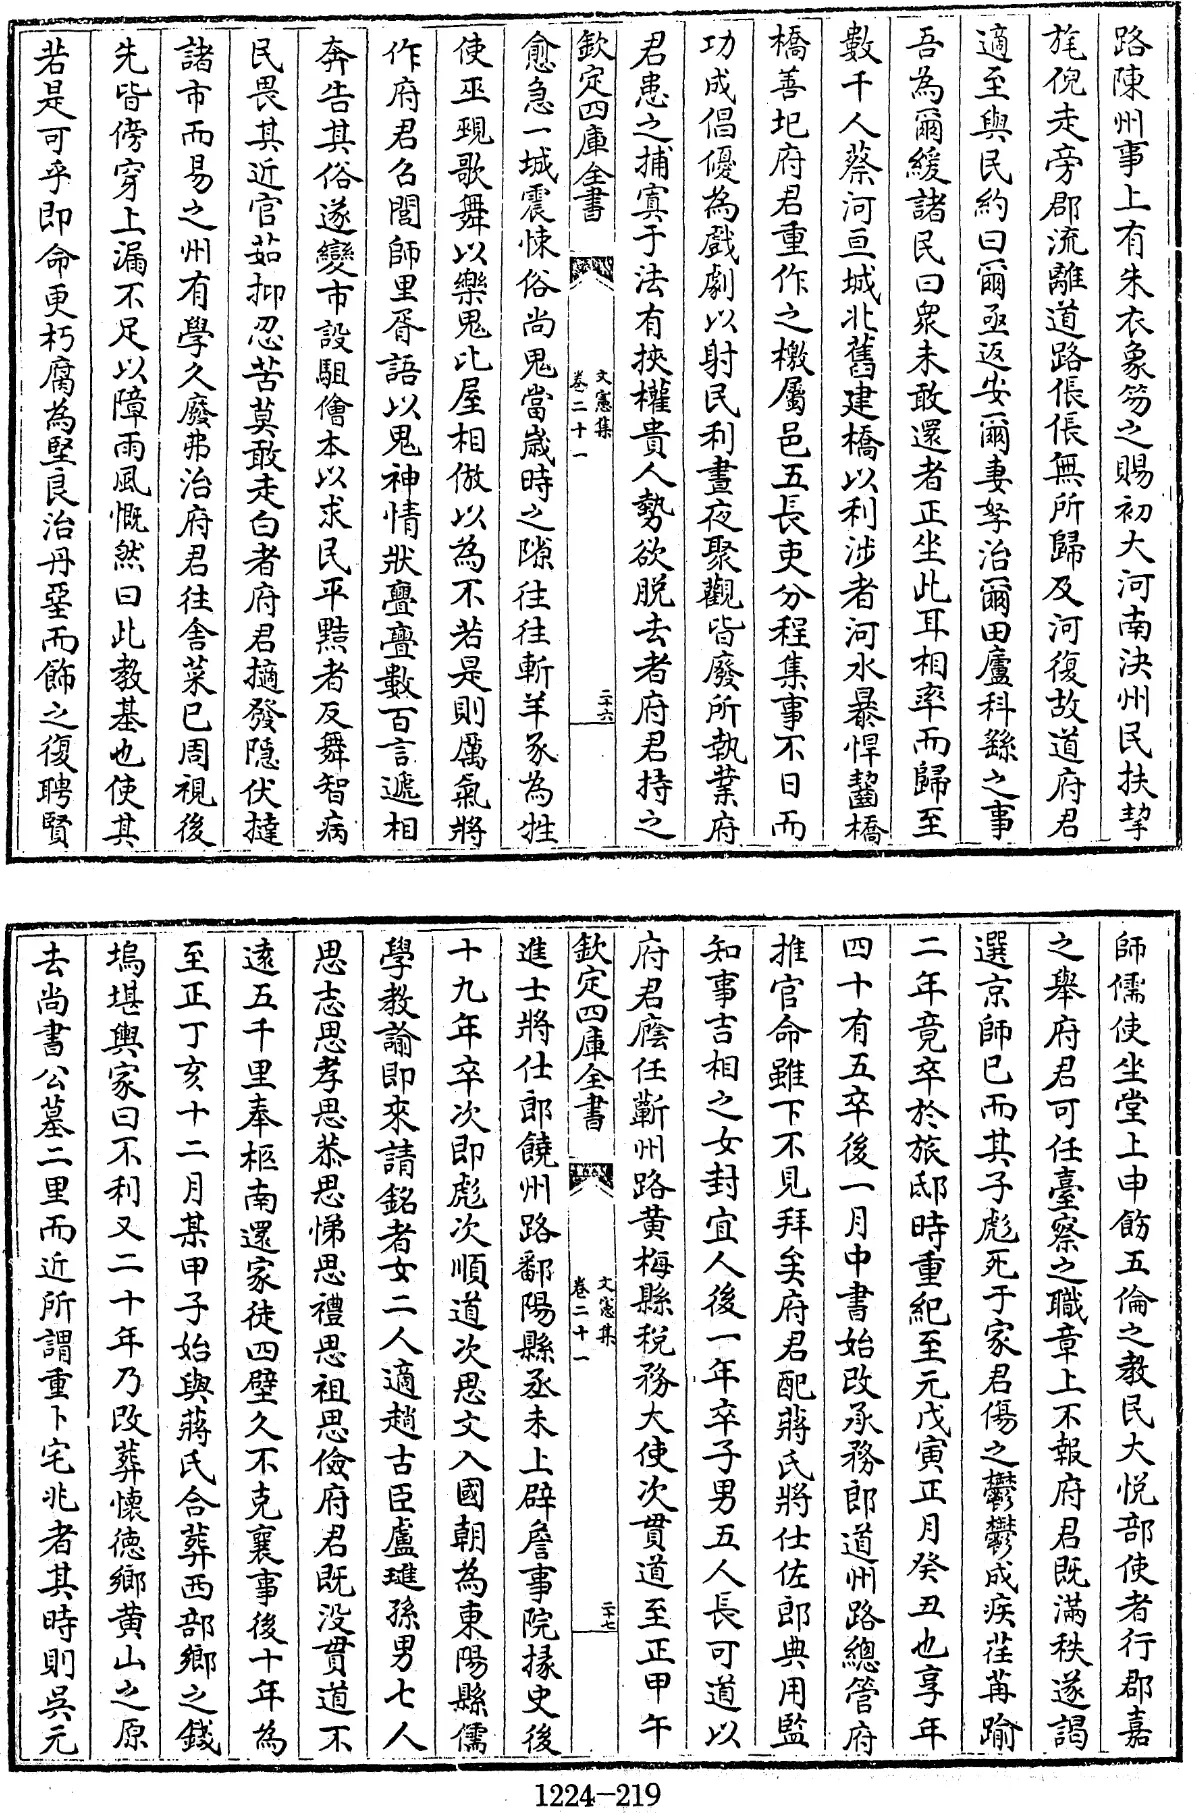 路陳州事上有朱衣象笏之賜初大河南決州民扶挈
旄倪走旁郡流離道路倀倀無所歸及河復故道府君
適至與民約曰爾亟返安爾妻孥治爾田廬科繇之事
吾為爾緩諸民曰衆未敢還者正坐此耳相率而歸至
數千人蔡河亘城北舊建橋以利涉者河水暴悍齧橋
橋善圮府君重作之檄屬邑五長吏分程集事不日而
功成倡優為戲劇以射民利晝夜聚觀皆廢所執業府
君患之捕寘于法有挾權貴人勢欲脱去者府君持之
欽定四庫全書
文憲集
卷二十一
二十六
愈急一城震悚俗尚鬼當歲時之隙往往斬羊豕為牲
使巫覡歌舞以樂鬼比屋相倣以為不若是則厲氣將
作府君召閭師里胥語以鬼神情狀亹亹數百言遞相
奔告其俗遂變市設駔儈本以求民平黠者反舞智病
民畏其近官茹抑忍苦莫敢走白者府君擿發隱伏撻
諸市而易之州有學久廢弗治府君往舍菜已周視後
先皆傍穿上漏不足以障雨風慨然曰此教基也使其
若是可乎即命更朽腐為堅良治丹堊而飾之復聘賢
師儒使坐堂上申飭五倫之教民大悅部使者行郡嘉
之舉府君可任臺察之職章上不報府君既滿秩遂謁
選京師已而其子彪死于家君傷之鬱鬱成疾荏苒踰
二年竟卒於旅邸時重紀至元戊寅正月癸丑也享年
四十有五卒後一月中書始改承務郎道州路總管府
推官命雖下不見拜矣府君配蔣氏將仕佐郎典用監
知事吉相之女封宜人後一年卒子男五人長可道以
府君廕任蘄州路黄梅縣税務大使次貫道至正甲午
欽定四庫全書
文憲集
卷二十一
二十七
進士將仕郎饒州路鄱陽縣丞未上辟詹事院掾史後
十九年卒次即彪次順道次思文入國朝為東陽縣儒
學教諭即來請銘者女二人適趙古臣盧璡孫男七人
思志思孝思恭思悌思禮思祖思儉府君既没貫道不
逺五千里奉柩南還家徒四壁久不克襄事後十年為
至正丁亥十二月某甲子始與蔣氏合葬西部鄉之錢
塢堪輿家曰不利又二十年乃改葬懷德鄉黄山之原
去尚書公墓二里而近所謂重卜宅兆者其時則吳元
1224-219